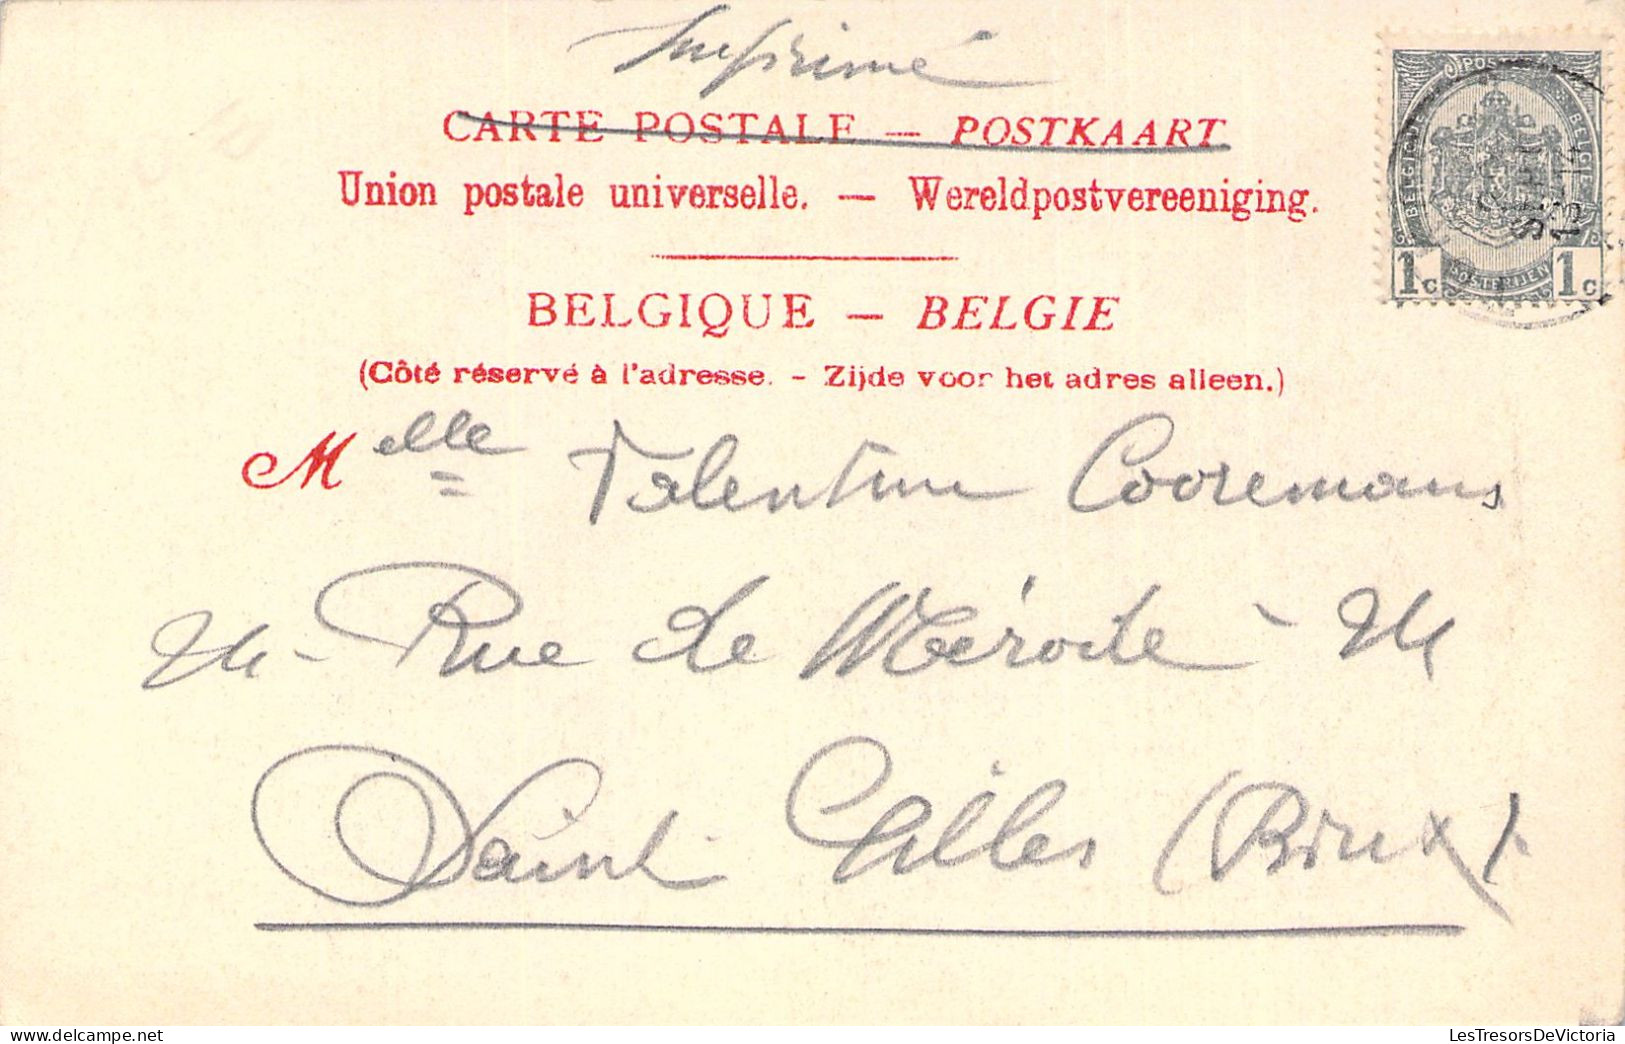 Imprimé
CARTE POSTALE — POSTKAART
Union postale universelle. — Wereldpostvereeniging.
BELGIQUE — BELGIE
(Côté réservé à l'adresse. - Zijde voor het adres alleen.)
Melle Valentine Cooremans
Rue de Mérode
Saint Gilles (Brux).
BELGIQUE POSTES BELGIE
1c POSTERIJEN 1c
LesTresorsDeVictoria